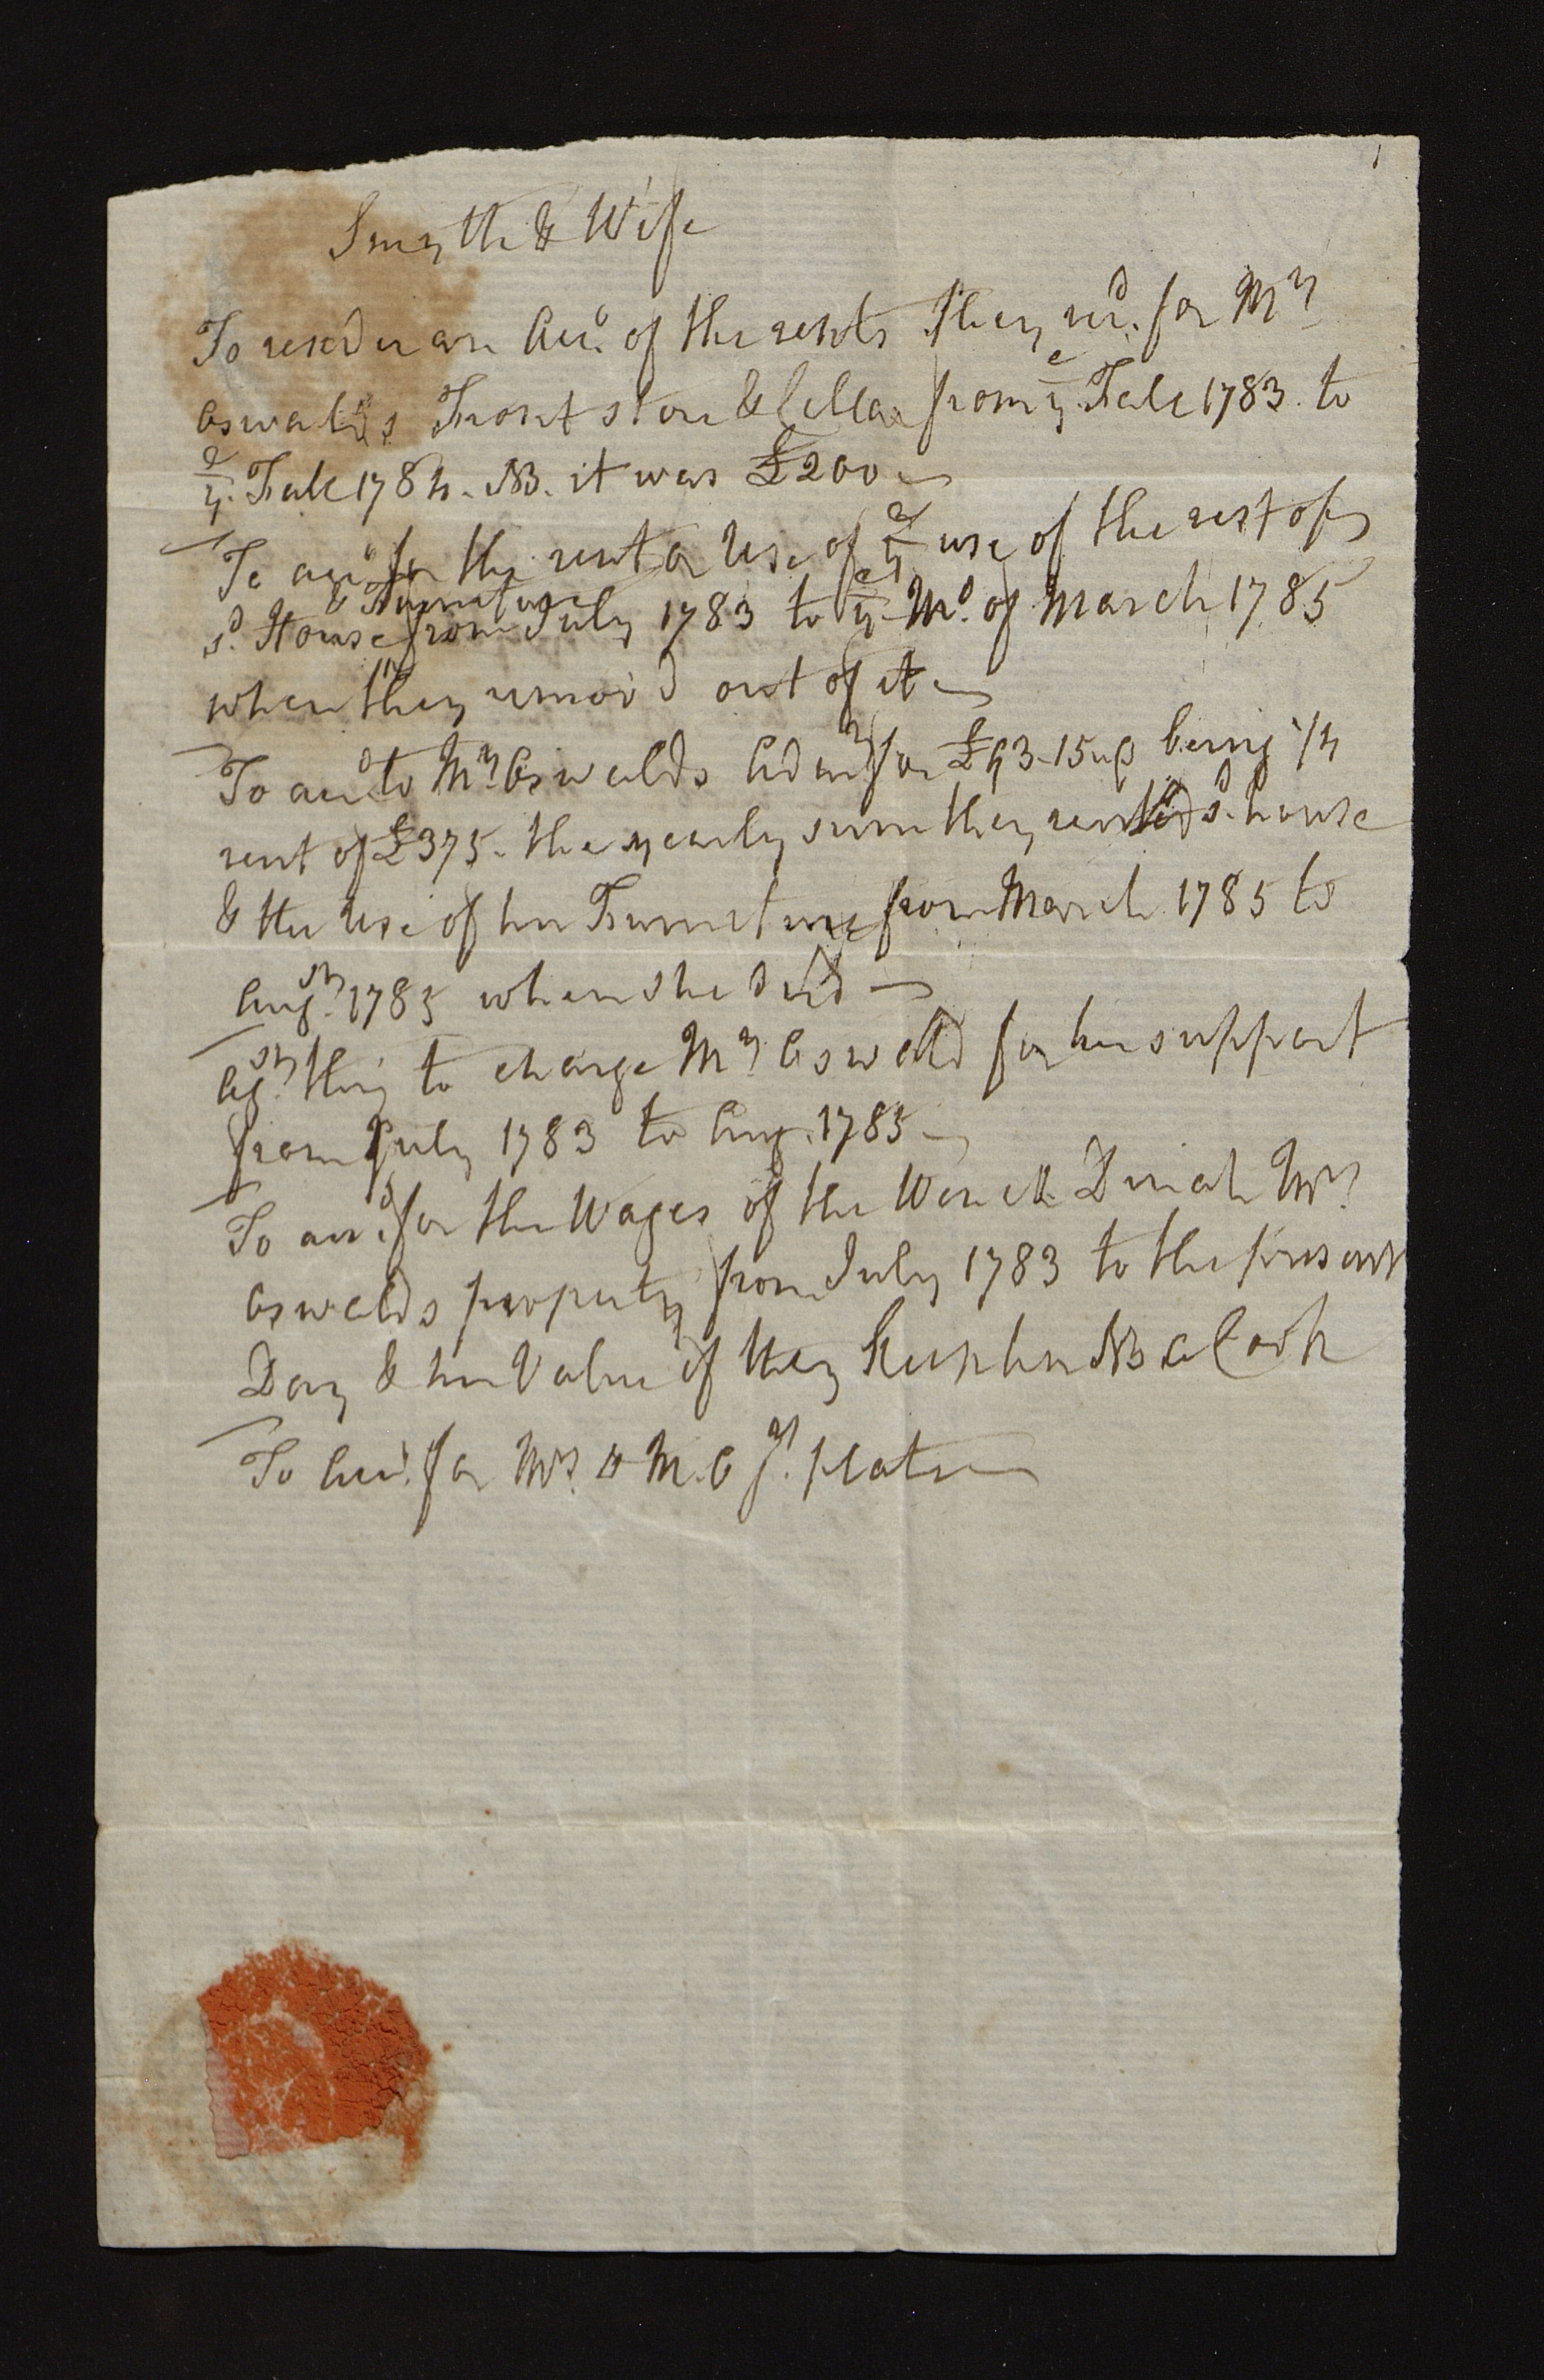 Smythe & Wife
To render an Acc.o of the rents they rec.d for Mrs
Oswald's Front store & Cellar from ye. Fale 1783 to
ye. Fale 1784. NB. it was £200
To acc.o for the rent or Use of ye use of the rest of
& Furneture
s.d House from July 1783 to ye. Mo. of March 1785
when they remov'd out of it
To acc.o to Mrs Oswalds Adm.rs for £93-15 being 1/4
rent of £375. the yearly sum they rented s.d house
& the Use of her Furneture from March 1785 to
Aug.st 1785 when she died
Ag.st they to charge Mrs Oswald for her support
from July 1783 to Aug. 1785
To acc.o for the Wages of the Wench Dinah Mrs
Oswalds property from July 1783 to the present
Day & her Value if they keep her NB a Cook
To Acc.o for Mrs & M. O plate